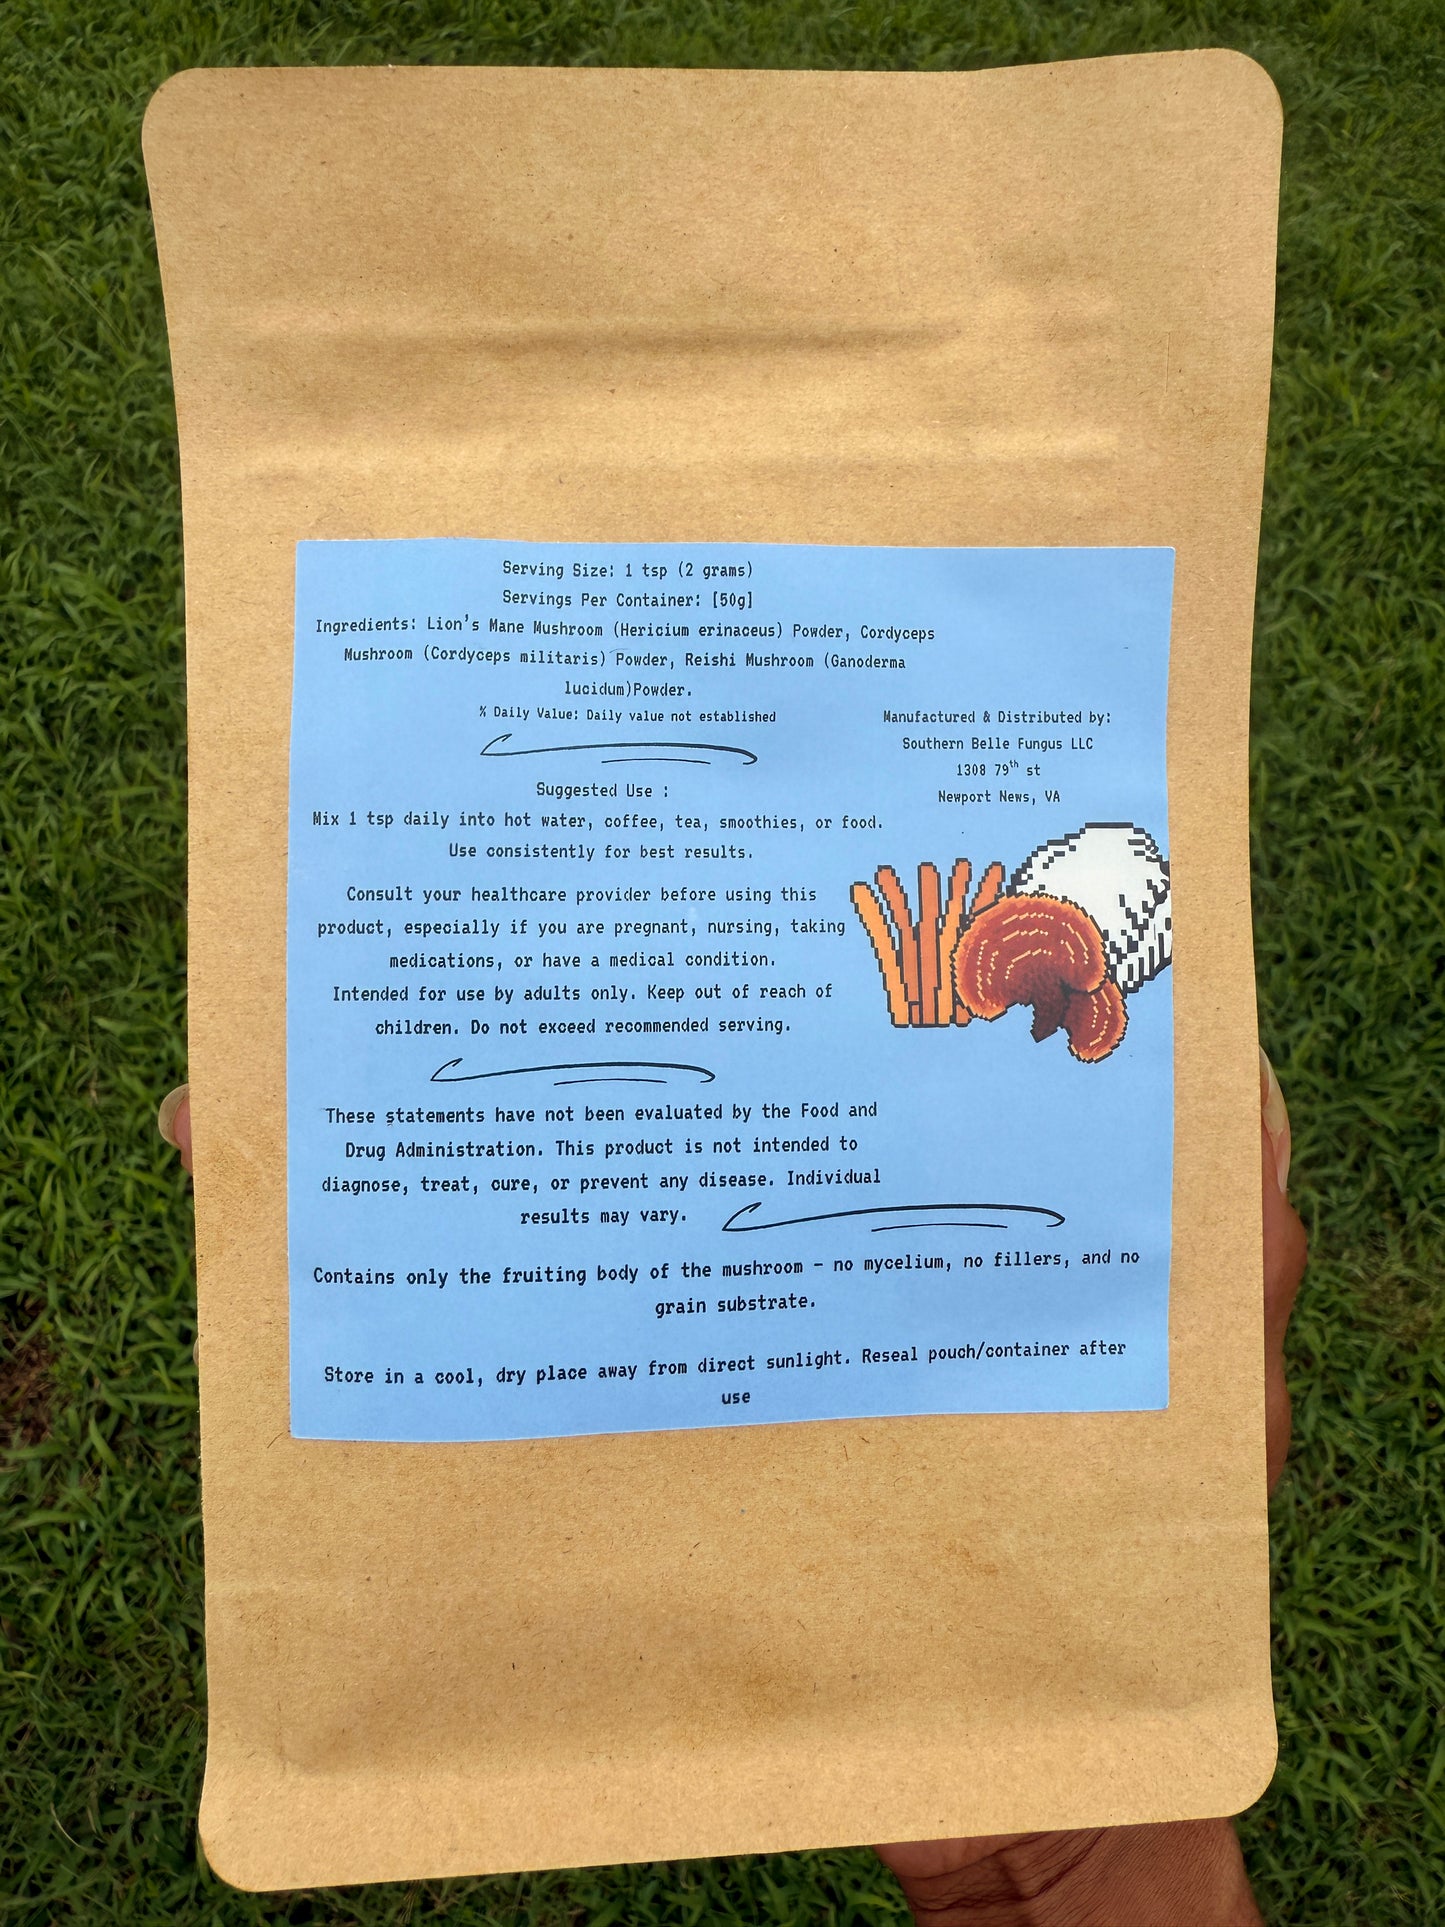 Serving Size: 1 tsp (2 grams)
Servings Per Container: [50g]
Ingredients: Lion's Mane Mushroom (Hericium erinaceus) Powder, Cordyceps
Mushroom (Cordyceps militaris) Powder, Reishi Mushroom (Ganoderma
lucidum)Powder.
% Daily Value: Daily value not established
Manufactured & Distributed by:
Southern Belle Fungus LLC
1308 79th st
Newport News, VA
Suggested Use :
Mix 1 tsp daily into hot water, coffee, tea, smoothies, or food.
Use consistently for best results.
Consult your healthcare provider before using this
product, especially if you are pregnant, nursing, taking
medications, or have a medical condition.
Intended for use by adults only. Keep out of reach of
children. Do not exceed recommended serving.
These statements have not been evaluated by the Food and
Drug Administration. This product is not intended to
diagnose, treat, cure, or prevent any disease. Individual
results may vary.
Contains only the fruiting body of the mushroom – no mycelium, no fillers, and no
grain substrate.
Store in a cool, dry place away from direct sunlight. Reseal pouch/container after
use